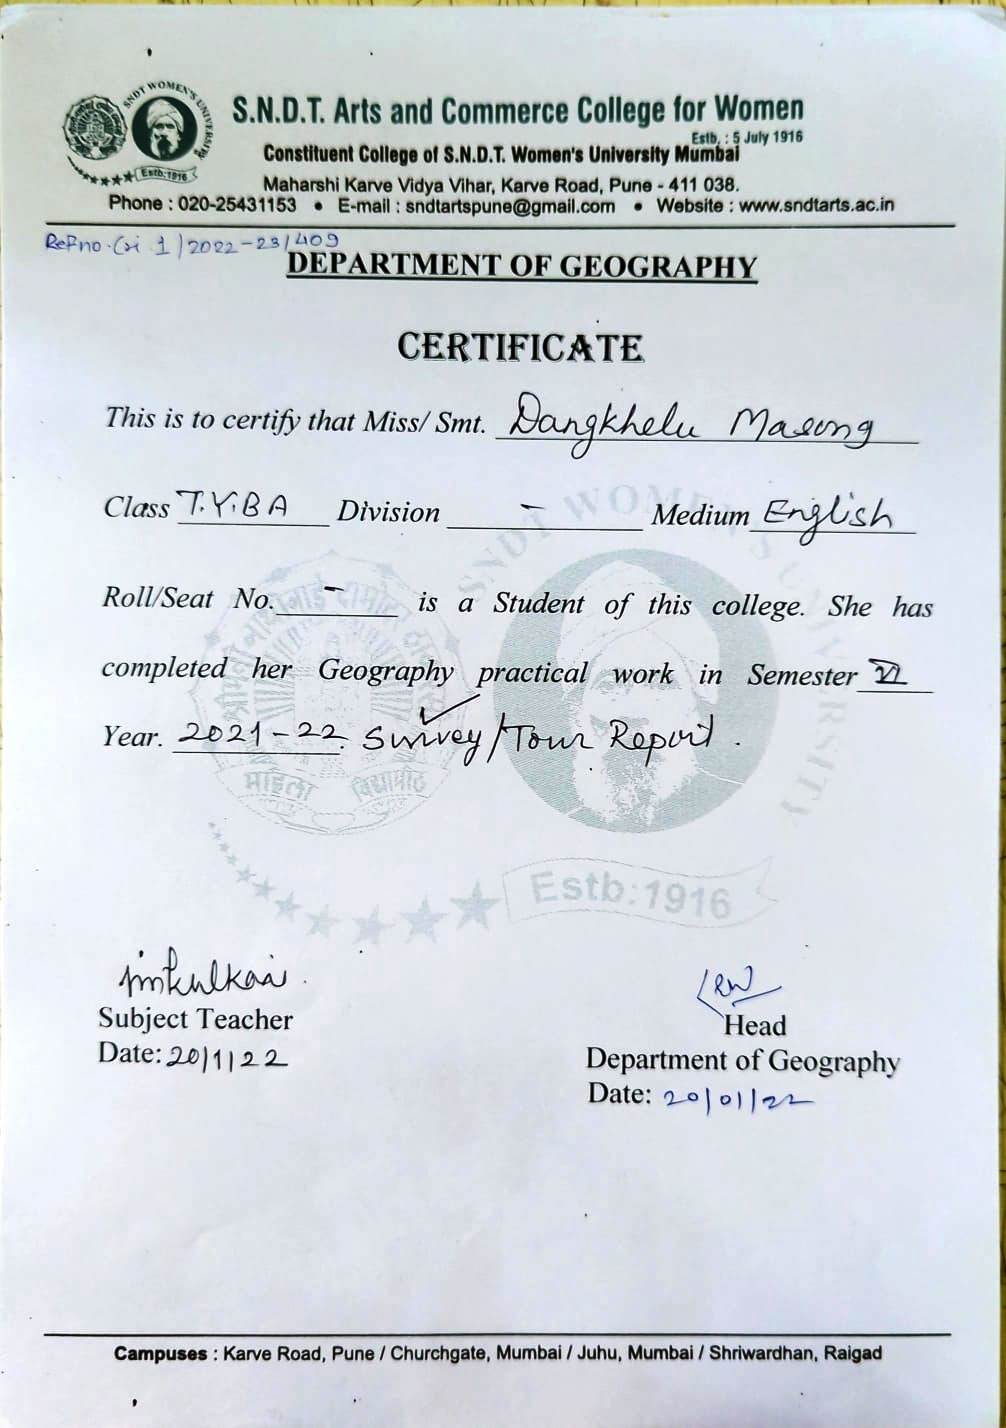 SNDT WOMEN'S UNIVERSITY
Estb:1916
S.N.D.T. Arts and Commerce College for Women
Estb. : 5 July 1916
Constituent College of S.N.D.T. Women's University Mumbai
Maharshi Karve Vidya Vihar, Karve Road, Pune - 411 038.
Phone : 020-25431153 • E-mail : sndtartspune@gmail.com • Website : www.sndtarts.ac.in
Ref no. 1/2022-23/409
DEPARTMENT OF GEOGRAPHY
CERTIFICATE
This is to certify that Miss/ Smt. Dangkhelu
Class T.Y.BA Division - Medium English
Roll/Seat No. - is a Student of this college. She has
completed her Geography practical work in Semester VI
Year. 2021-22. Survey/Tour Report.
SNDT WOMEN'S UNIVERSITY
महिला विद्यापीठ
Estb:1916
Subject Teacher
Date: 20/1/22
Head
Department of Geography
Date: 20/01/22
Campuses : Karve Road, Pune / Churchgate, Mumbai / Juhu, Mumbai / Shriwardhan, Raigad